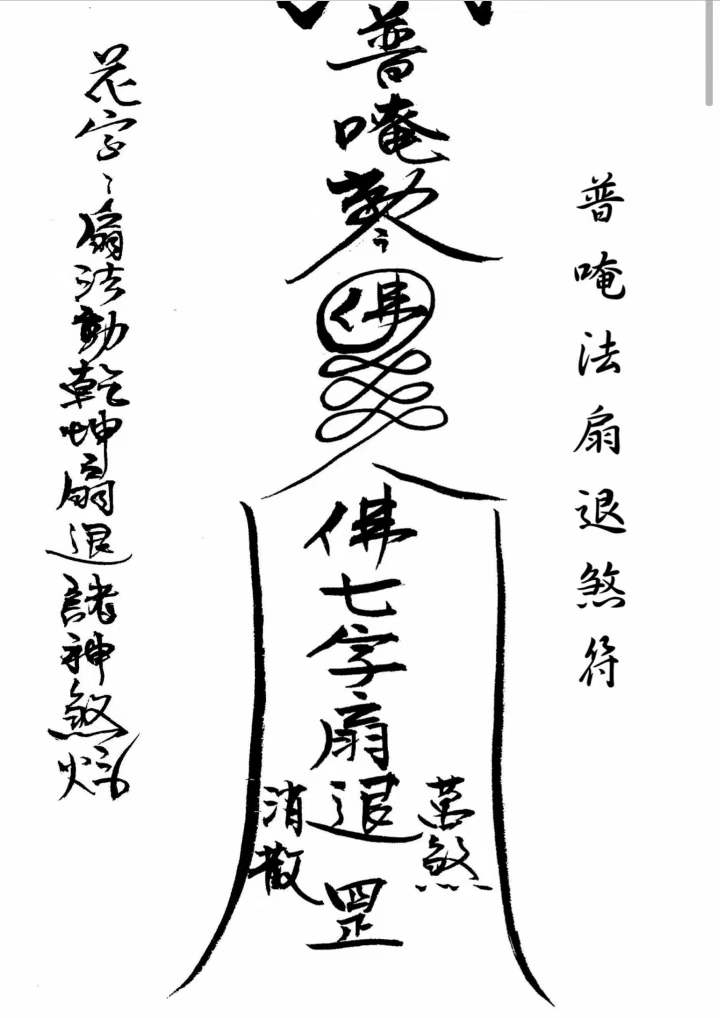 普唵法扇退煞符
普唵勅
佛
佛七字扇退罡
萬煞
消散
花字：扇法動乾坤扇退諸神煞